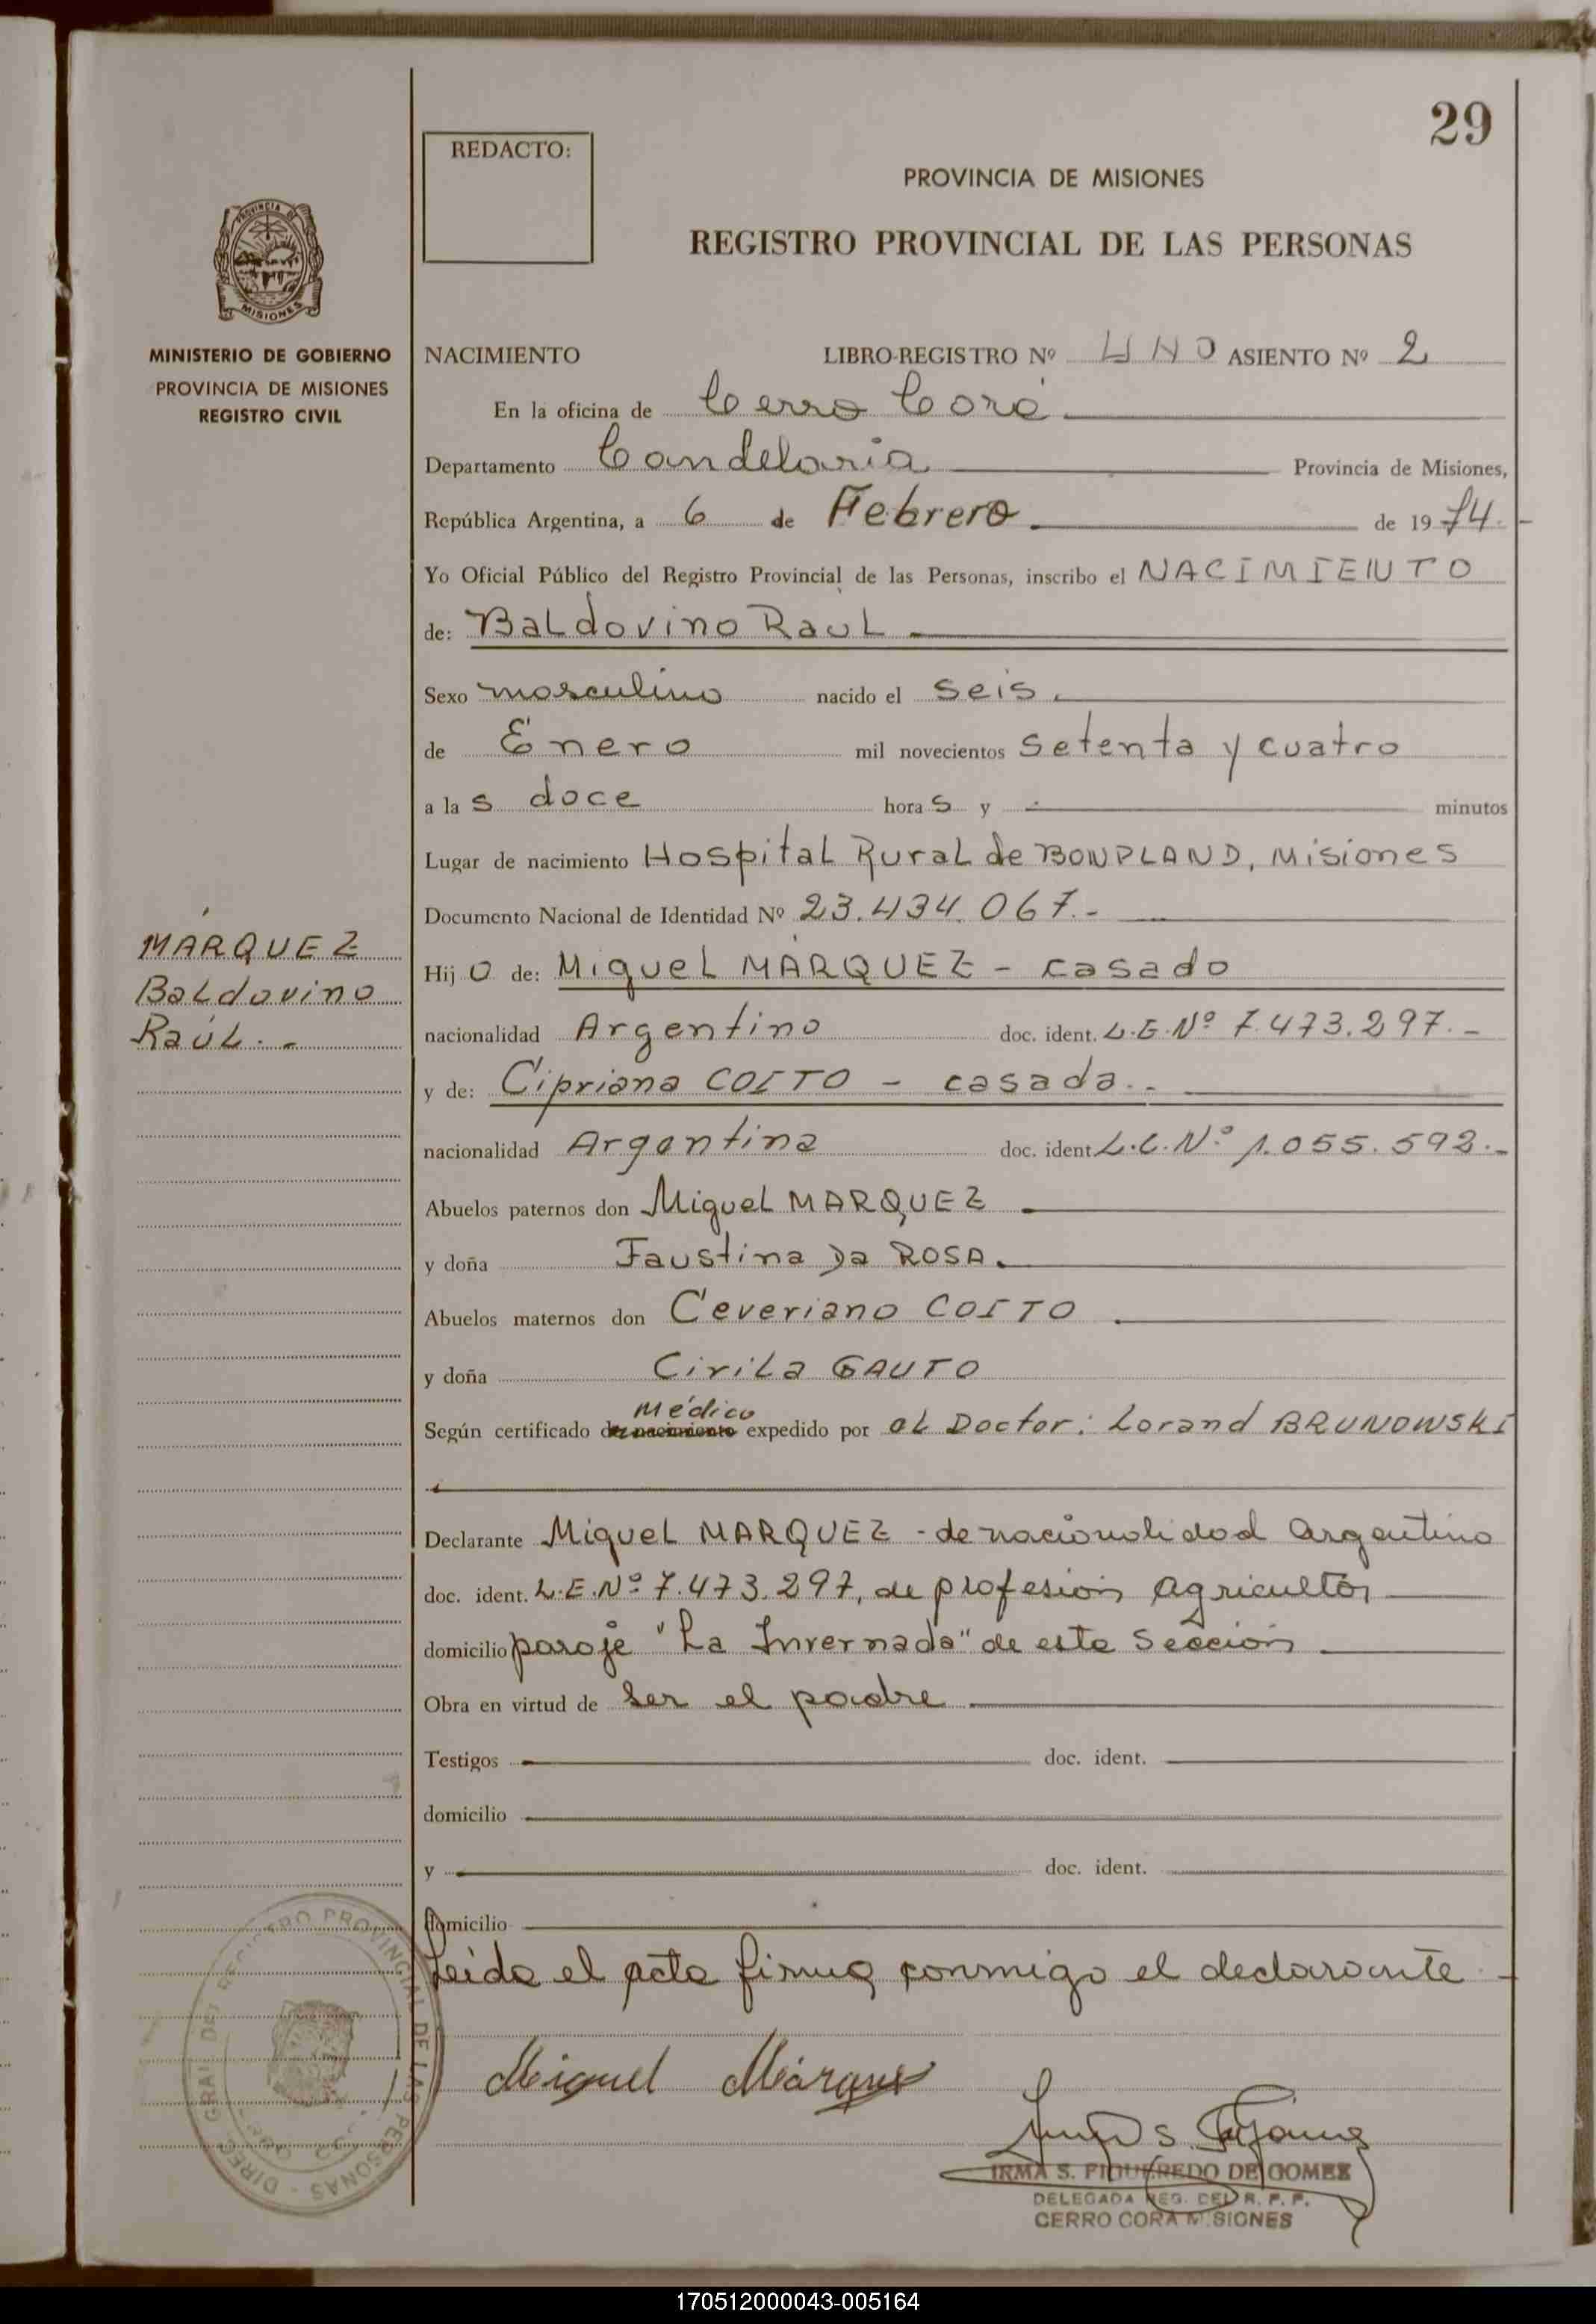 29
REDACTO:
PROVINCIA DE MISIONES
REGISTRO PROVINCIAL DE LAS PERSONAS
PROVINCIA DE
MISIONES
MINISTERIO DE GOBIERNO
PROVINCIA DE MISIONES
REGISTRO CIVIL
NACIMIENTO LIBRO-REGISTRO Nº UNO ASIENTO Nº 2
En la oficina de Cerro Corá
Departamento Candelaria Provincia de Misiones,
República Argentina, a 6 de Febrero de 1974.-
Yo Oficial Público del Registro Provincial de las Personas, inscribo el NACIMIENTO
de: BaLdovino RauL
Sexo masculino nacido el seis
de Enero mil novecientos setenta y cuatro
a las doce horas y minutos
Lugar de nacimiento HospitaL RuraL de BONPLAND, Misiones
Documento Nacional de Identidad Nº 23.434.067.-
MARQUEZ
BaLdovino
RaúL.-
Hijo de: MigueL MARQUEZ - casado
nacionalidad Argentino doc. ident. L.E.Nº 7.473.297.-
y de: Cipriana COITO - casada.-
nacionalidad Argentina doc. ident. L.C.Nº 1.055.592.-
Abuelos paternos don MigueL MARQUEZ
y doña Faustina Da ROSA.
Abuelos maternos don Ceveriano COITO
y doña CiriLa GAUTO
médico
Según certificado de nacimiento expedido por eL Doctor: Lorand BRUNOWSKI
Declarante MigueL MARQUEZ - de nacionalidad argentino
doc. ident. L.E.Nº 7.473.297, de profesión agricultor
domicilio paraje "La Invernada" de esta Sección
Obra en virtud de ser el padre
Testigos doc. ident.
domicilio
y doc. ident.
domicilio
Leida el acta firma conmigo el declarante
DIREC. GRAL DEL REGISTRO PROVINCIAL DE LAS PERSONAS
Miguel Márquez
IRMA S. FIGUEREDO DE GOMEZ
DELEGADA REG. DEL R. P. P.
CERRO CORA MISIONES
170512000043-005164